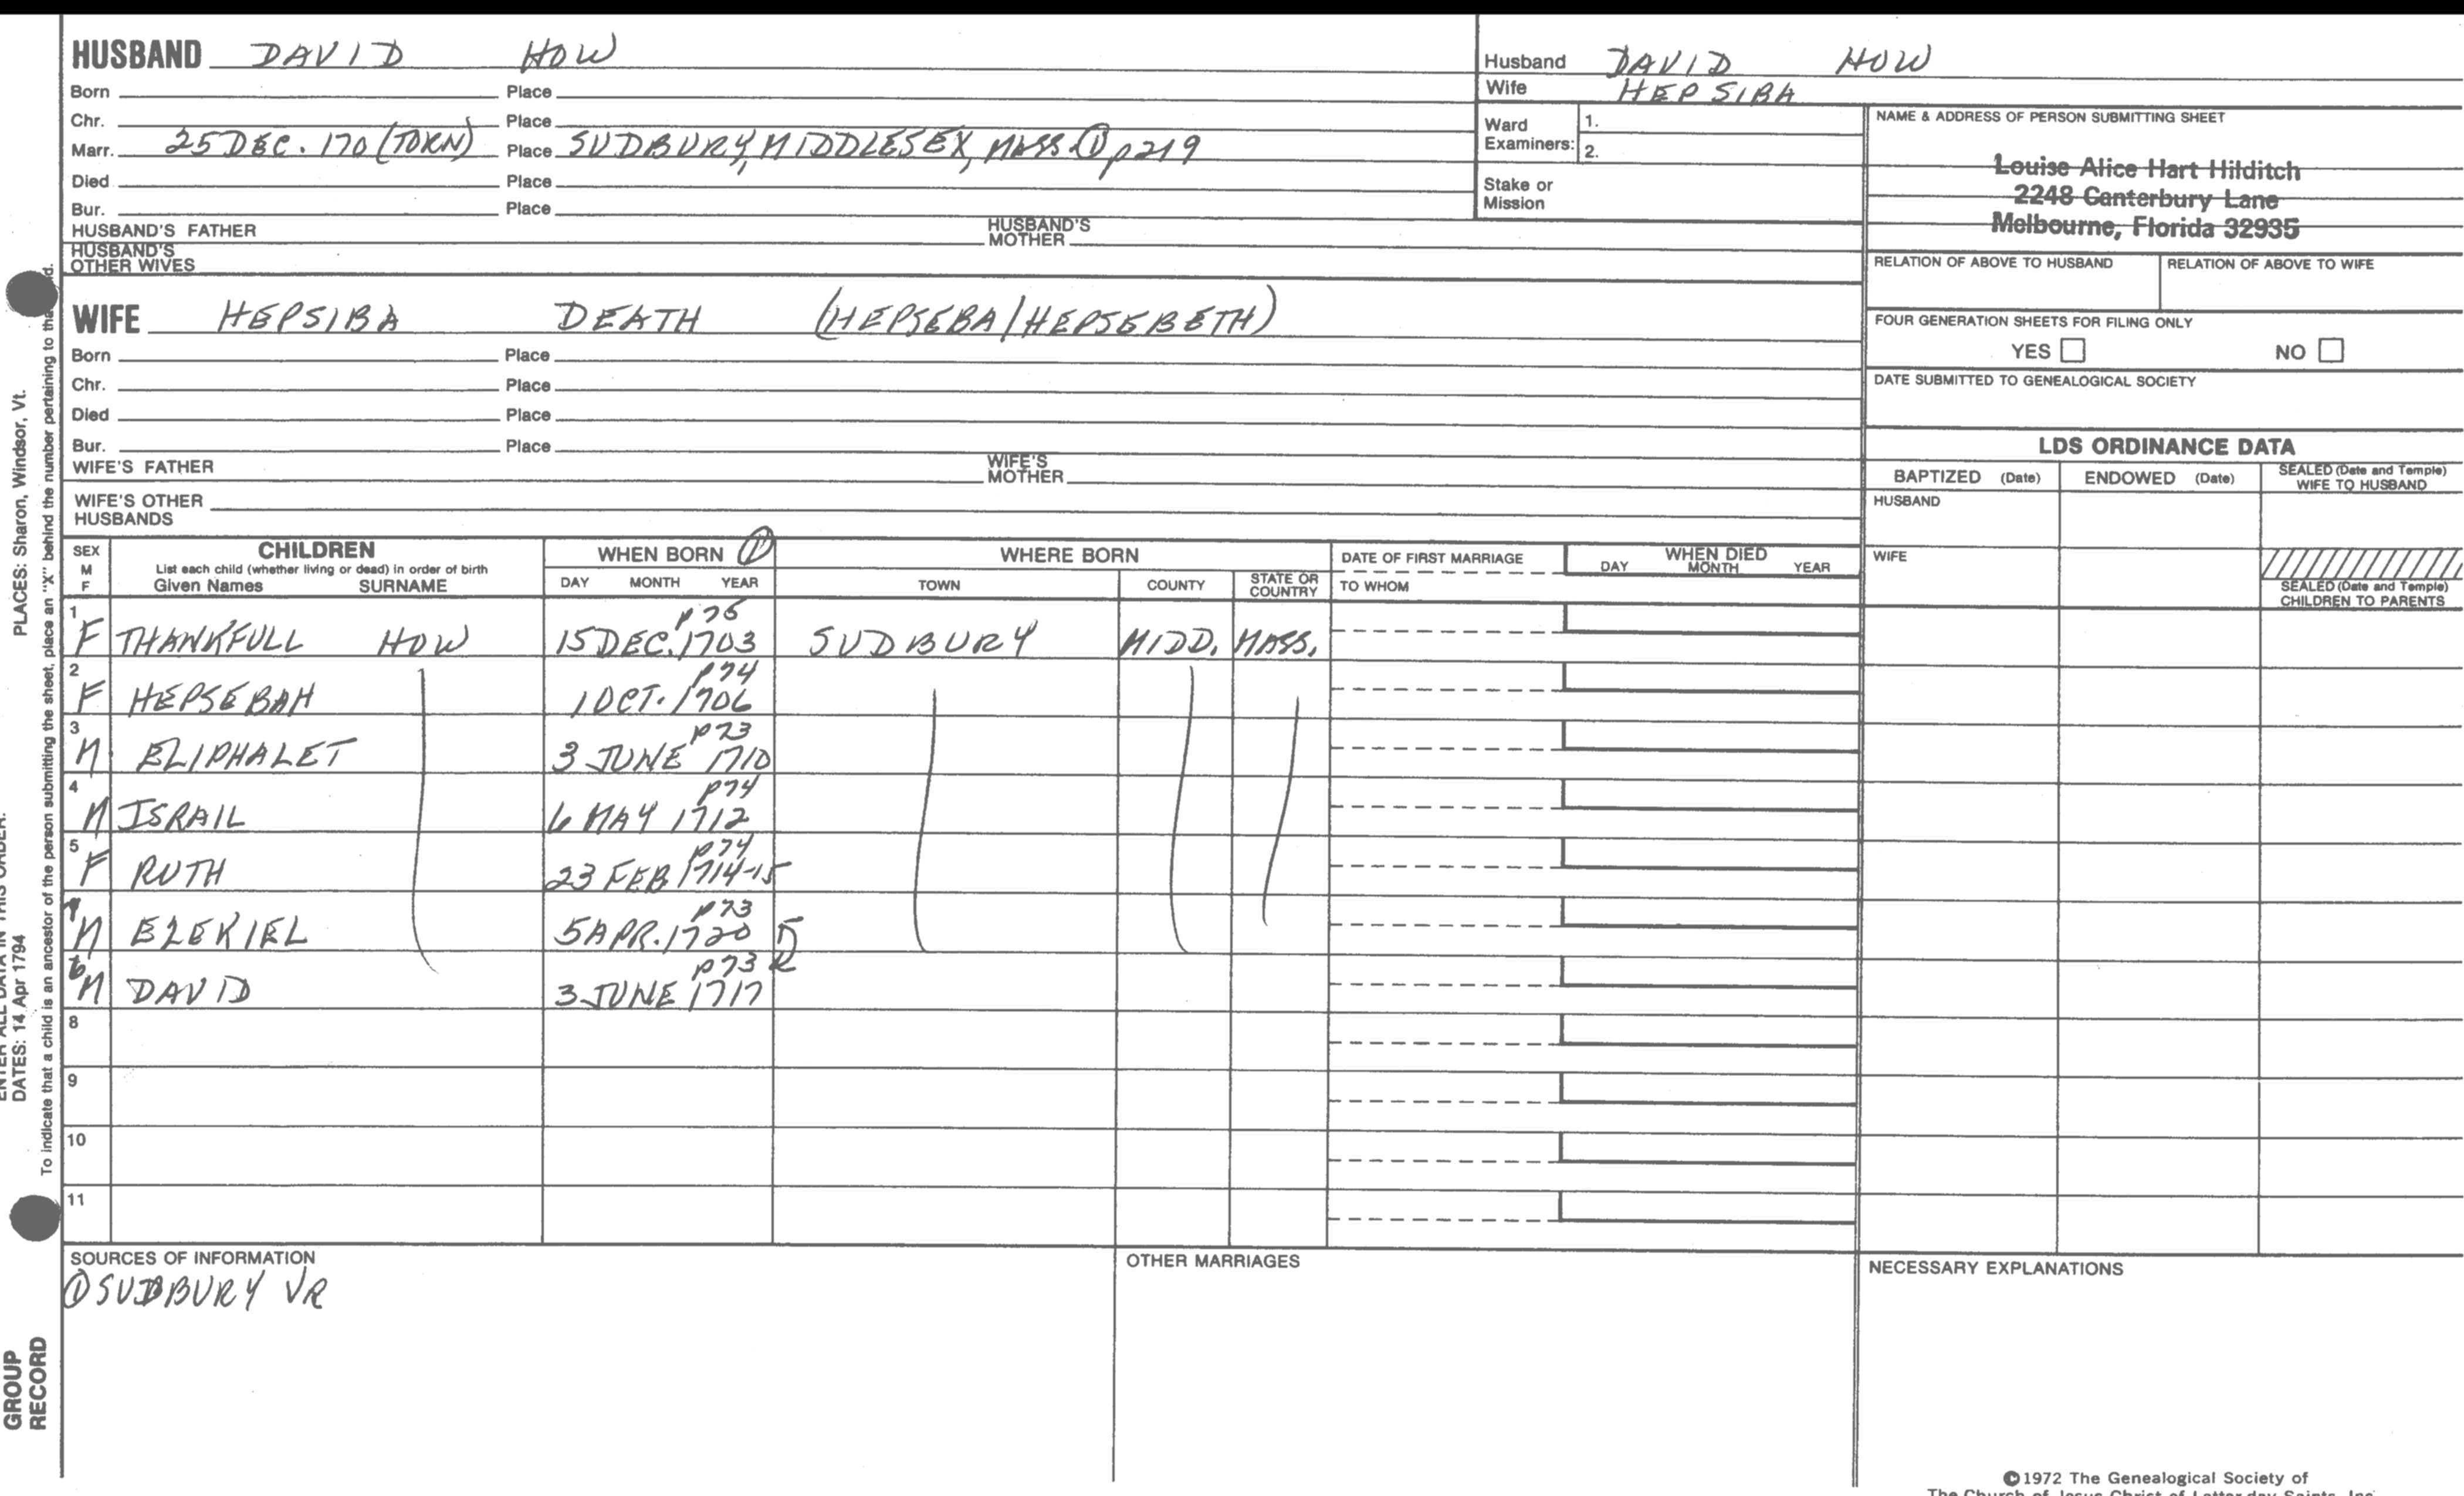 HUSBAND DAVID HOW
Born Place
Chr. Place
Marr. 25 DEC. 170 (TORN) Place SUDBURY, MIDDLESEX, MASS. ① p219
Died Place
Bur. Place
HUSBAND'S FATHER HUSBAND'S MOTHER
HUSBAND'S OTHER WIVES
WIFE HEPSIBA DEATH (HEPSEBA/HEPSEBETH)
Born Place
Chr. Place
Died Place
Bur. Place
WIFE'S FATHER WIFE'S MOTHER
WIFE'S OTHER HUSBANDS
Husband DAVID HOW
Wife HEPSIBA
Ward Examiners: 1.
2.
Stake or Mission
NAME & ADDRESS OF PERSON SUBMITTING SHEET
Louise Alice Hart Hilditch
2248 Canterbury Lane
Melbourne, Florida 32935
RELATION OF ABOVE TO HUSBAND RELATION OF ABOVE TO WIFE
FOUR GENERATION SHEETS FOR FILING ONLY
YES NO
DATE SUBMITTED TO GENEALOGICAL SOCIETY
LDS ORDINANCE DATA
BAPTIZED (Date) ENDOWED (Date) SEALED (Date and Temple) WIFE TO HUSBAND
HUSBAND
WIFE SEALED (Date and Temple) CHILDREN TO PARENTS
SEX M F CHILDREN WHEN BORN ① WHERE BORN DATE OF FIRST MARRIAGE WHEN DIED
List each child (whether living or dead) in order of birth
Given Names SURNAME DAY MONTH YEAR TOWN COUNTY STATE OR COUNTRY TO WHOM DAY MONTH YEAR
1 p75
F THANKFULL HOW 15 DEC. 1703 SUDBURY MIDD. MASS.
2 p74
F HEPSEBAH 1 OCT. 1706
3 p73
M ELIPHALET 3 JUNE 1710
4 p74
M ISRAIL 6 MAY 1712
5 p74
F RUTH 23 FEB 1714-15
7 p73
M EZEKIEL 5 APR. 1720
6 p73
M DAVID 3 JUNE 1717
8
9
10
11
SOURCES OF INFORMATION
① SUDBURY VR
OTHER MARRIAGES
NECESSARY EXPLANATIONS
©1972 The Genealogical Society of
The Church of Jesus Christ of Latter-day Saints, Inc.
PLACES: Sharon, Windsor, Vt.
ENTER ALL DATA IN THIS ORDER:
DATES: 14 Apr 1794
To indicate that a child is an ancestor of the person submitting the sheet, place an "X" behind the number pertaining to
GROUP
RECORD